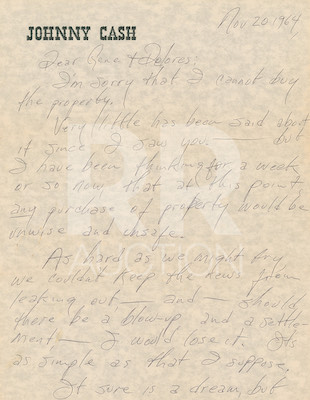 Nov 20 1964
JOHNNY CASH
Dear Gene & Dolores:
I'm sorry that I cannot buy
the property.
Very little has been said about
it since I saw you. — but
I have been thinking for a week
or so now that at this point
any purchase of property would be
unwise and unsafe.
As hard as we might try
we couldn't keep the news from
leaking out — and — should
there be a blow-up and a settle-
ment, — I would lose it. It's
as simple as that I suppose.
It sure is a dream, but
RR
AUCTION